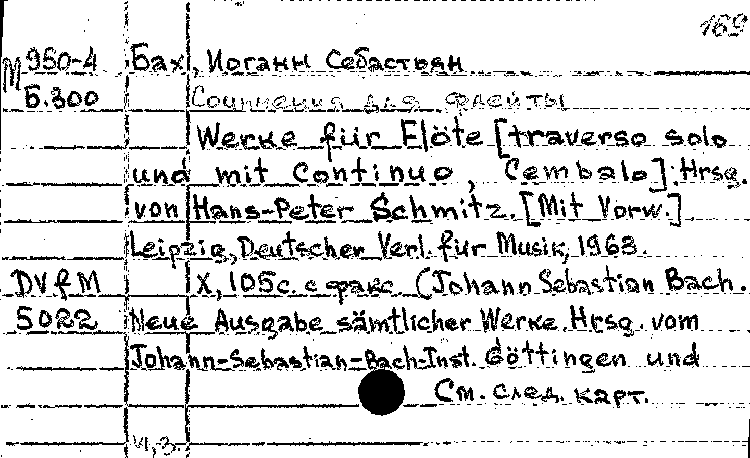 169
М 960-4 Бах, Иоганн Себастьян
Б.300 Сочинения для флейты
Werke für Flöte [traverso solo
und mit Continuo, Cembalo]. Hrsg.
von Hans-Peter Schmitz. [Mit Vorw.]
Leipzig, Deutscher Verl. für Musik, 1963.
DVfM X, 105с. с факс. (Johann Sebastian Bach.
5022 Neue Ausgabe sämtlicher Werke. Hrsg. vom
Johann-Sebastian-Bach-Inst. Göttingen und
См. след. карт.
И, 3.